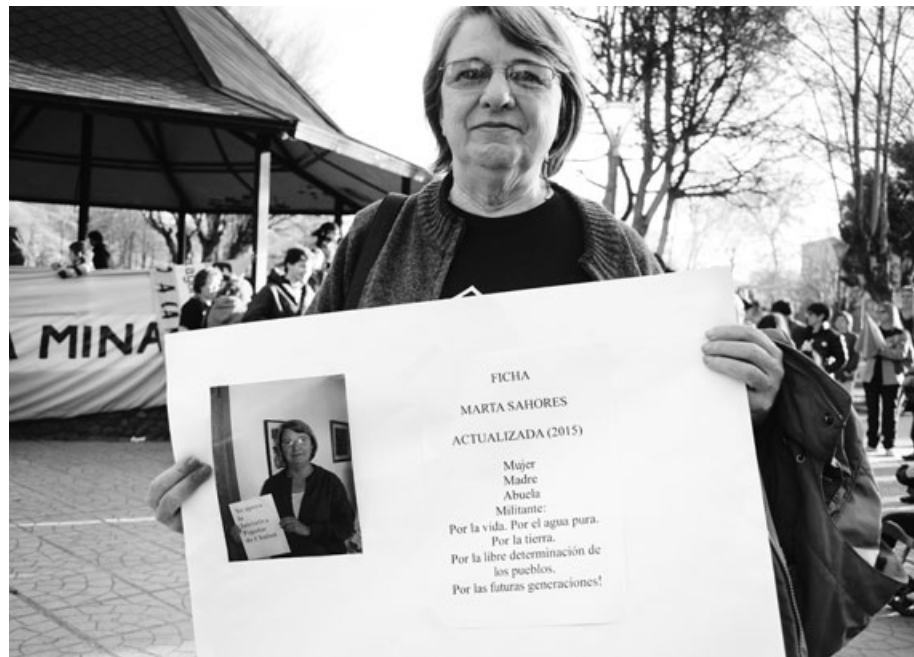 A MINA
A CA
FICHA
MARTA SAHORES
ACTUALIZADA (2015)
Mujer
Madre
Abuela
Militante:
Por la vida. Por el agua pura.
Por la tierra.
Por la libre determinación de
los pueblos.
Por las futuras generaciones!
Yo apoyo
la
Iniciativa
Popular
de Chubut